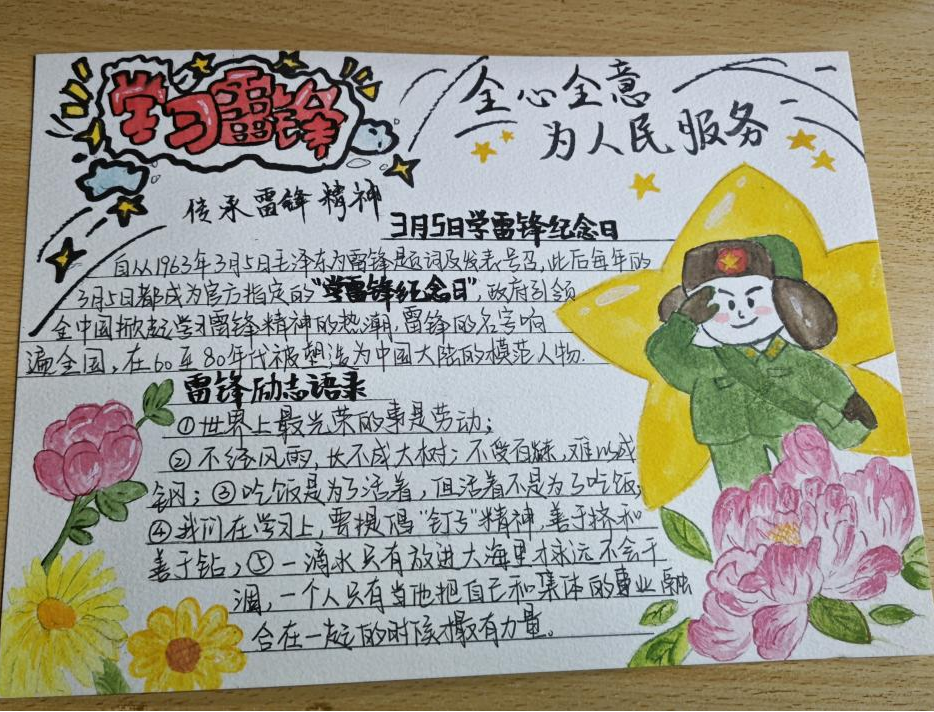 学习雷锋
全心全意
为人民服务
传承雷锋精神
3月5日学雷锋纪念日
自从1963年3月5日毛泽东为雷锋题词及发表号召,此后每年的
3月5日都成为官方指定的“学雷锋纪念日”,政府引领
全中国掀起学习雷锋精神的热潮,雷锋的名字响
遍全国,在60至80年代被塑造为中国大陆的模范人物.
雷锋励志语录
①世界上最光荣的事是劳动;
②不经风雨,长不成大树;不受百炼,难以成
钢;③吃饭是为了活着,但活着不是为了吃饭;
④我们在学习上,要提倡“钉子”精神,善于挤和
善于钻;⑤一滴水只有放进大海里才永远不会干
涸,一个人只有当他把自己和集体的事业融
合在一起的时候才最有力量。